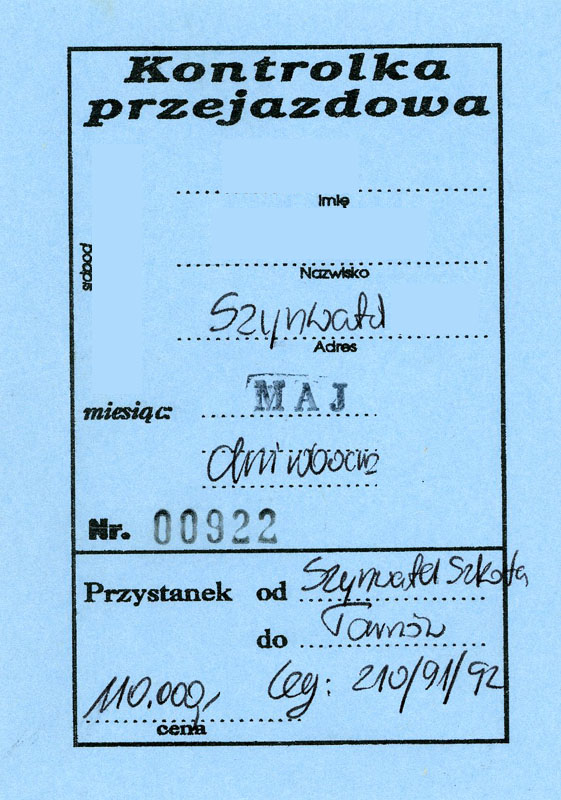 Kontrolka
przejazdowa
Imię
Nazwisko
podpis
Szynwałd
Adres
miesiąc: MAJ
dni robocze
Nr. 00922
Przystanek od Szynwałd Szkoła
do Tarnów
110.000,- Leg: 210/91/92
cena